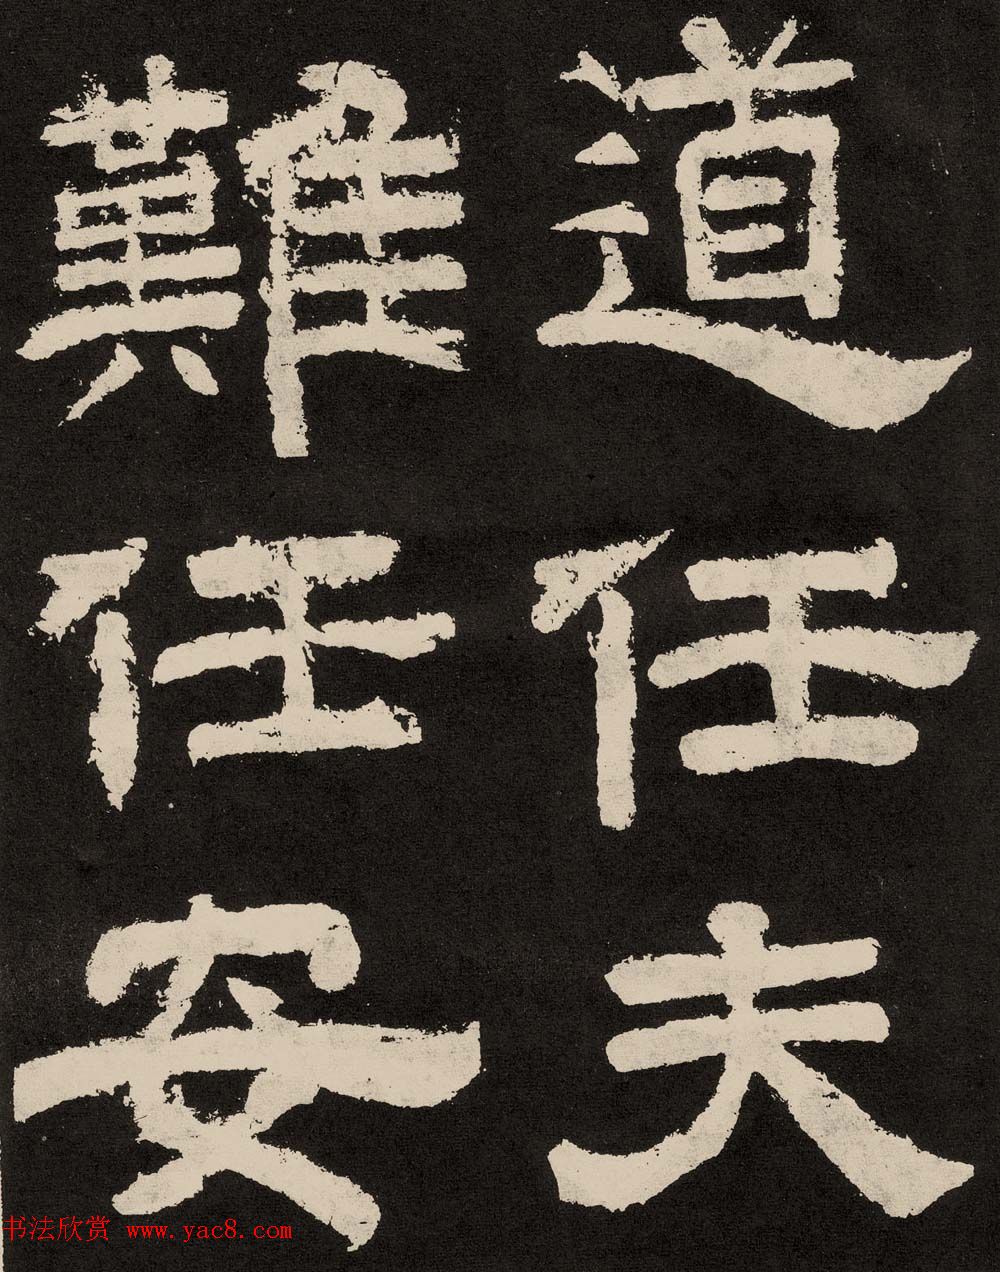 道任夫
難任安
书法欣赏 www.yac8.com